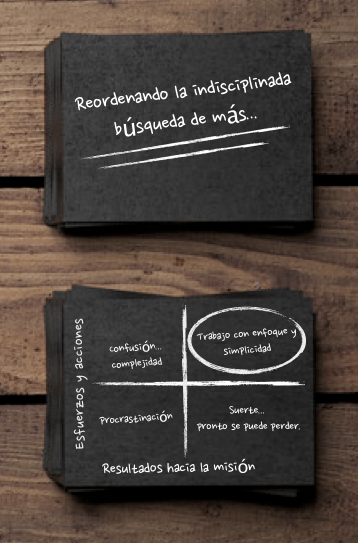 Reordenando la indisciplinada
búsqueda de más...
Esfuerzos y acciones
confusión...
complejidad
Trabajo con enfoque y
simplicidad
Procrastinación
Suerte...
pronto se puede perder.
Resultados hacia la misión